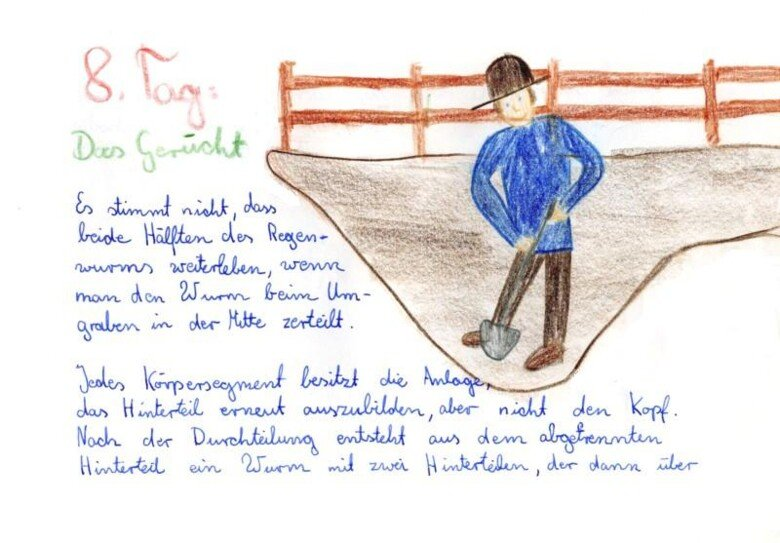 8. Tag:
Das Gerücht
Es stimmt nicht, dass
beide Hälften des Regen-
wurms weiterleben, wenn
man den Wurm beim Um-
graben in der Mitte zerteilt.
Jedes Körpersegment besitzt die Anlage,
das Hinterteil erneut auszubilden, aber nicht den Kopf.
Nach der Durchteilung entsteht aus dem abgetrennten
Hinterteil ein Wurm mit zwei Hinterteilen, der dann über